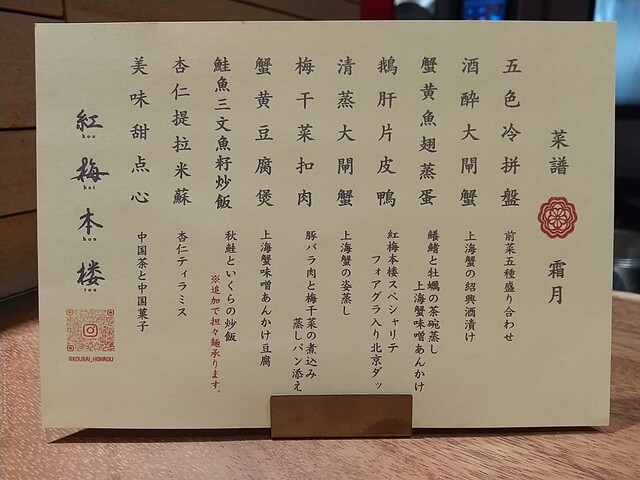 菜譜 霜月
五色冷拼盤
前菜五種盛り合わせ
酒醉大閘蟹
上海蟹の紹興酒漬け
蟹黄魚翅蒸蛋
鱶鰭と牡蠣の茶碗蒸し
上海蟹味噌あんかけ
鵝肝片皮鴨
紅梅本楼スペシャリテ
フォアグラ入り北京ダック
清蒸大閘蟹
上海蟹の姿蒸し
梅干菜扣肉
豚バラ肉と梅干菜の煮込み
蒸しパン添え
蟹黄豆腐煲
上海蟹味噌あんかけ豆腐
鮭魚三文魚籽炒飯
秋鮭といくらの炒飯
※追加で担々麺承ります。
杏仁提拉米蘇
杏仁ティラミス
美味甜点心
中国茶と中国菓子
紅梅本楼
kou
bai
hon
rou
@KOUBAI_HONROU